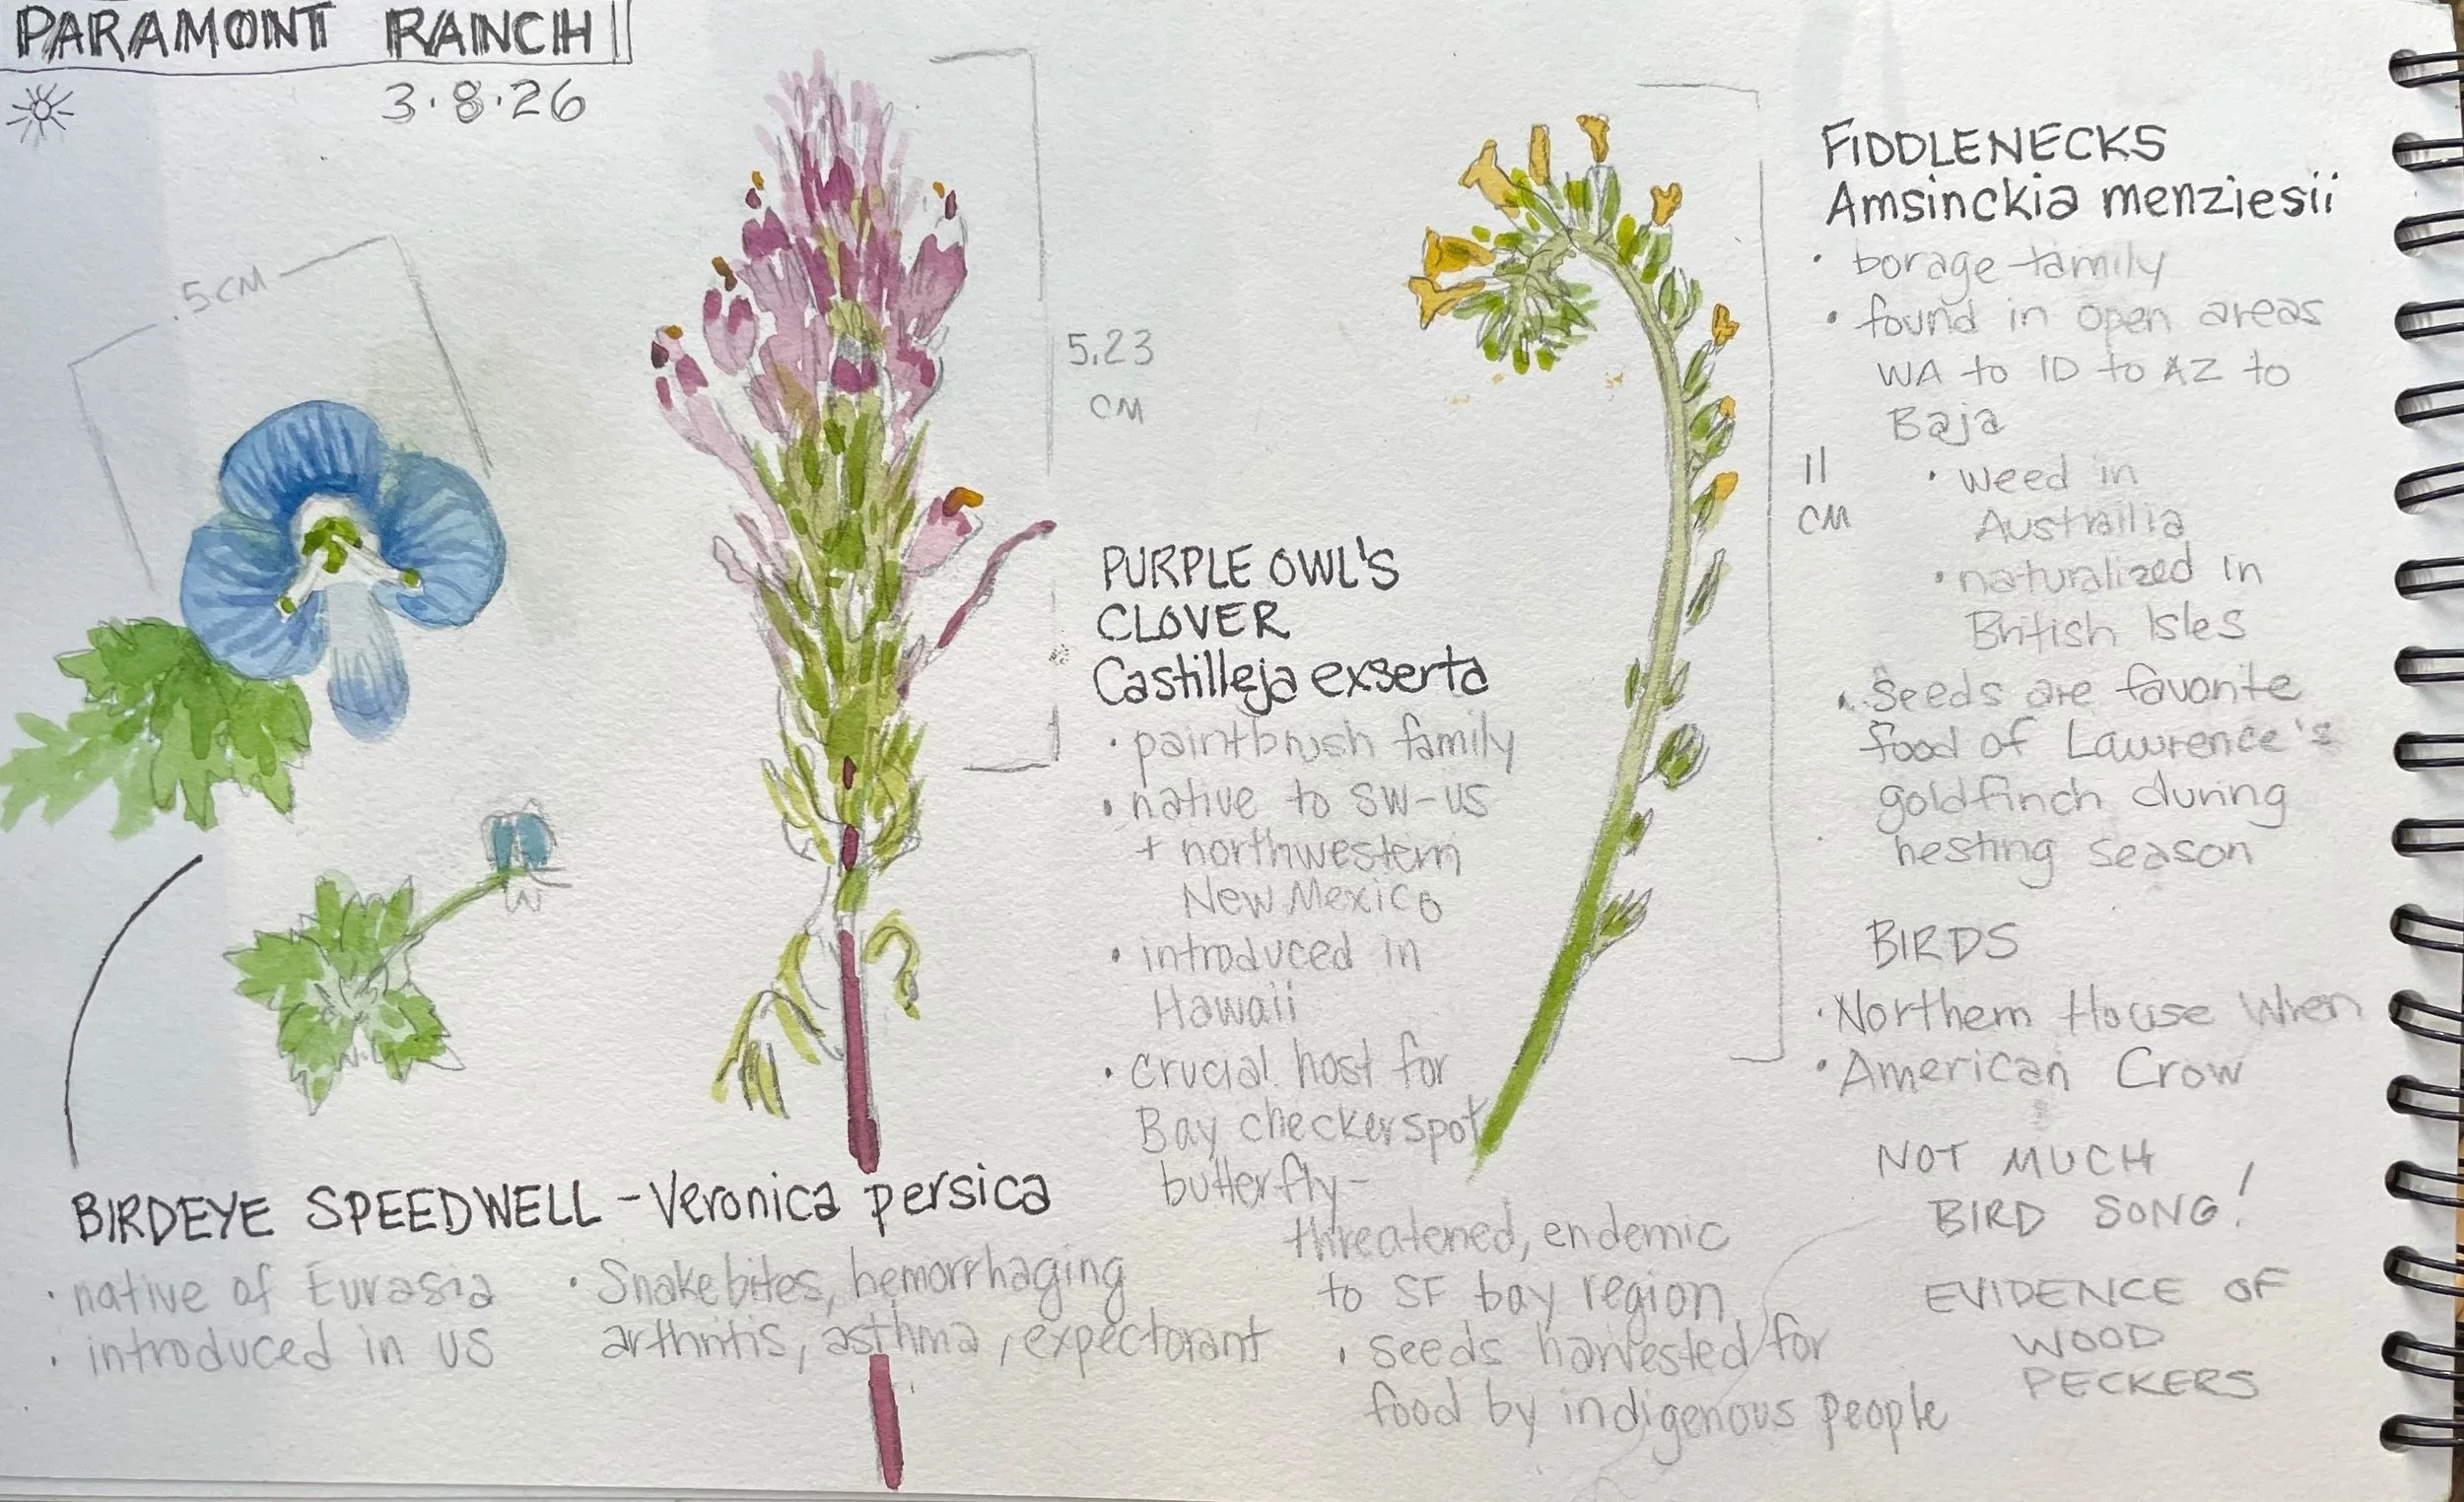 PARAMONT RANCH
3.8.26
.5 CM
5.23
CM
PURPLE OWL'S
CLOVER
Castilleja exserta
• paintbrush family
• native to SW-US
+ northwestern
New Mexico
• introduced in
Hawaii
• crucial host for
Bay checkerspot
butterfly-
threatened, endemic
to SF bay region
• seeds harvested for
food by indigenous people
11
CM
FIDDLENECKS
Amsinckia menziesii
• borage family
• found in open areas
WA to ID to AZ to
Baja
• weed in
Austrailia
• naturalized in
British Isles
• Seeds are favorite
food of Lawrence's
goldfinch during
nesting season
BIRDS
• Northern House Wren
• American Crow
NOT MUCH
BIRD SONG!
EVIDENCE OF
WOOD
PECKERS
BIRDEYE SPEEDWELL - Veronica persica
• native of Eurasia
• introduced in US
• Snakebites, hemorrhaging
arthritis, asthma, expectorant